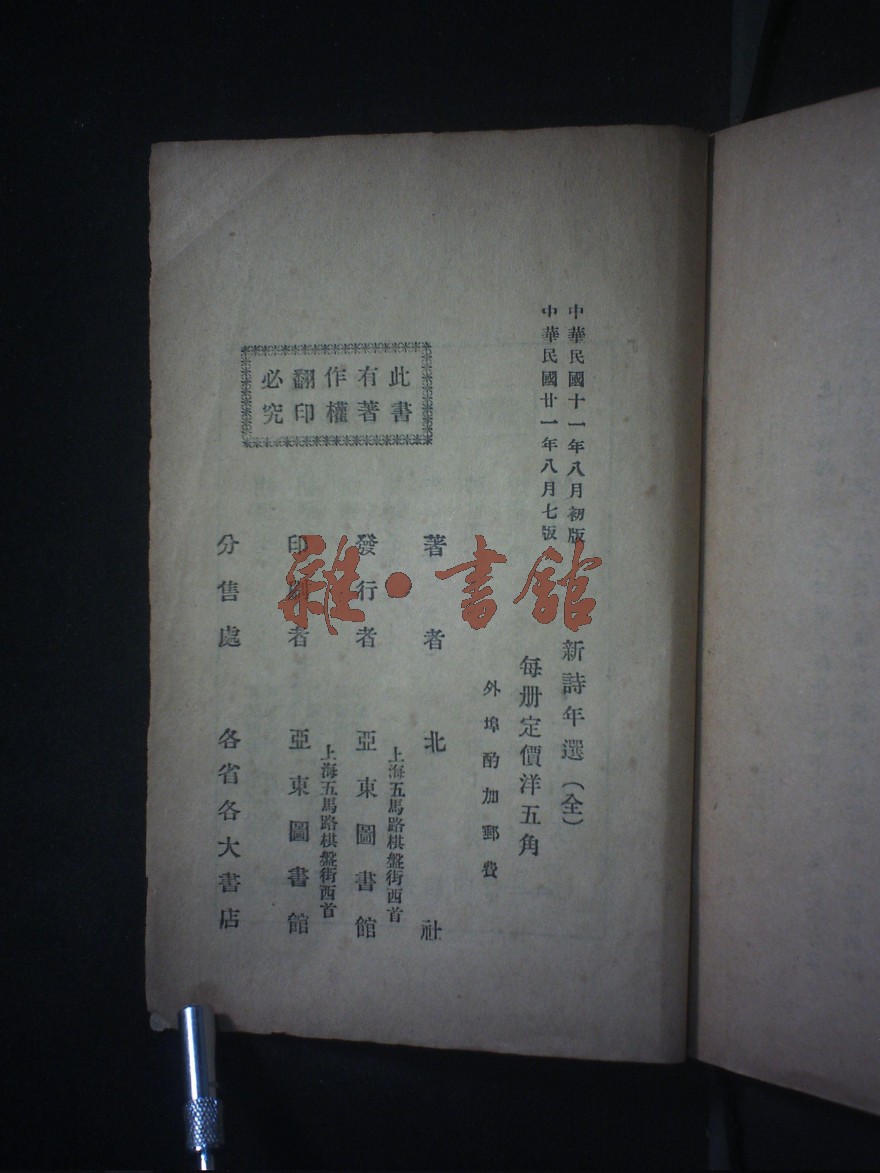 中華民國十一年八月初版
中華民國廿一年八月七版
新詩年選（全）
每册定價洋五角
外埠酌加郵費
著者 北社
上海五馬路棋盤街西首
發行者 亞東圖書館
上海五馬路棋盤街西首
印刷者 亞東圖書館
分售處 各省各大書店
此書
有著
作權
翻印
必究
雜·書館